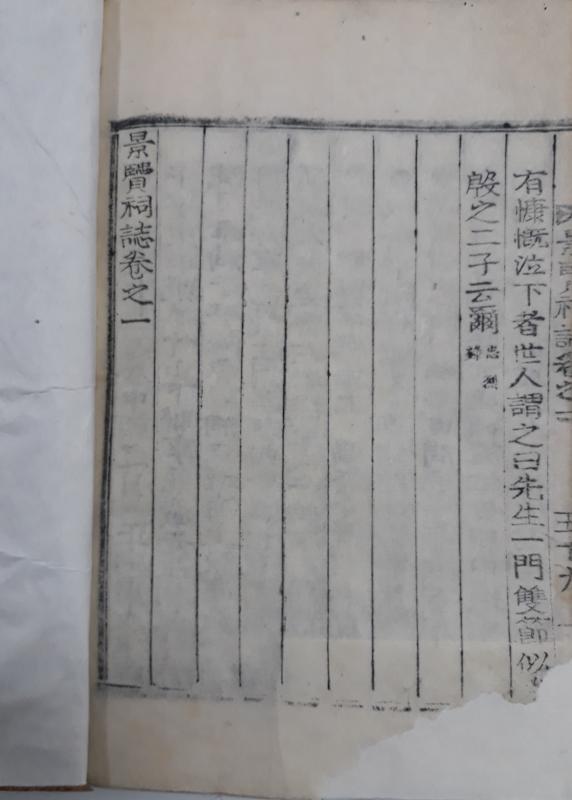 景賢祠誌卷之一
有慷慨泣下者世人謂之曰先生一門雙節似
殷之二子云爾 忠烈錄
景賢祠誌卷之一